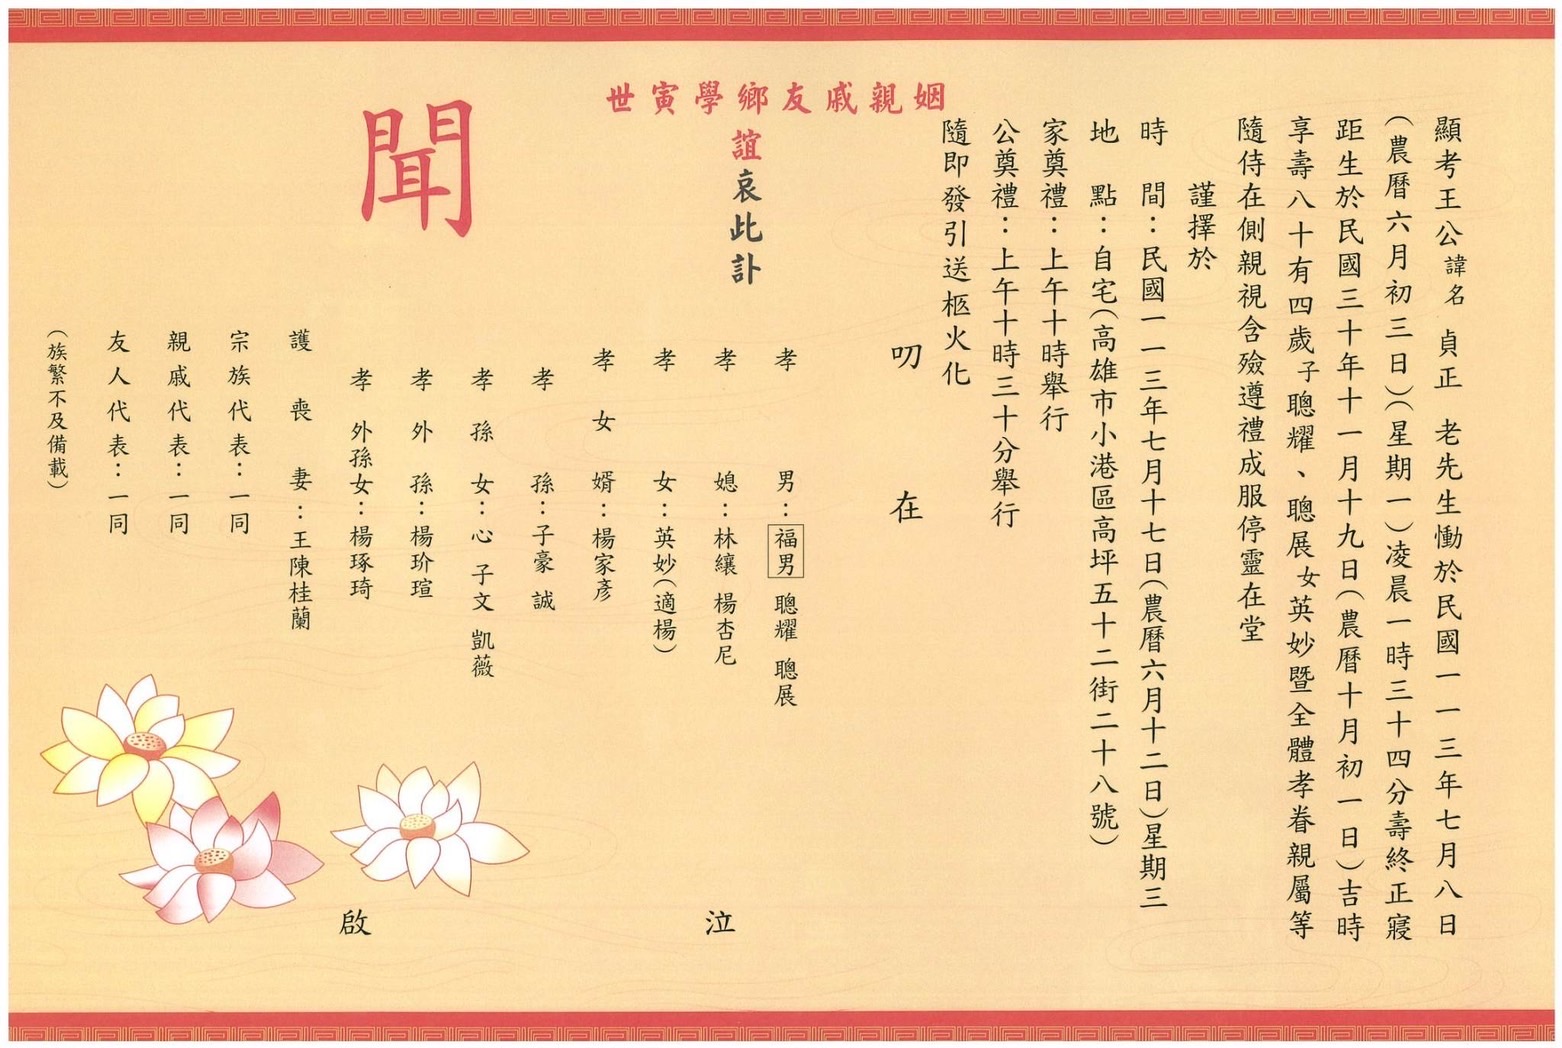 顯考王公諱名貞正老先生慟於民國一一三年七月八日
(農曆六月初三日)(星期一)凌晨一時三十四分壽終正寢
距生於民國三十年十一月十九日(農曆十月初一日)吉時
享壽八十有四歲子聰耀、聰展女英妙暨全體孝眷親屬等
隨侍在側親視含殮遵禮成服停靈在堂
謹擇於
時 間：民國一一三年七月十七日(農曆六月十二日)星期三
地 點：自宅(高雄市小港區高坪五十二街二十八號)
家奠禮：上午十時舉行
公奠禮：上午十時三十分舉行
隨即發引送柩火化
叨 在
姻親戚友鄉學寅世
誼哀此訃
聞
孝 男：福男 聰耀 聰展
孝 媳：林纕 楊杏尼
孝 女：英妙(適楊)
孝 女 婿：楊家彥
孝 孫：子豪 誠
孝 孫 女：心 子文 凱薇
孝 外 孫：楊玠瑄
孝 外孫女：楊琢琦
護 喪 妻：王陳桂蘭
宗族代表：一同
親戚代表：一同
友人代表：一同
(族繁不及備載)
泣 啟